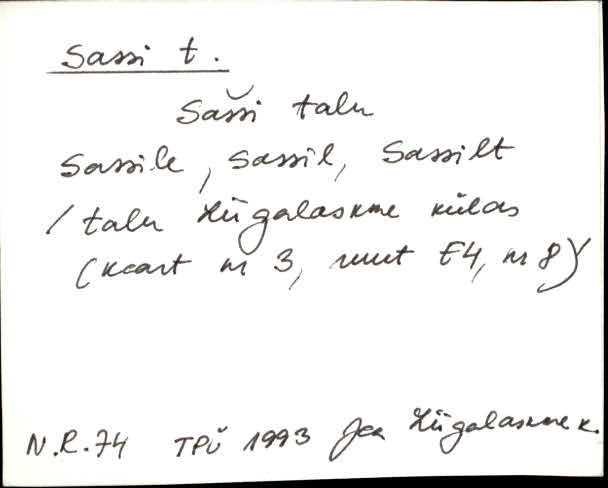 Sassi t.
Sassi talu
Sassile, Sassil, Sassilt
/ talu Liigalaskme külas
(kaart nr 3, ruut E4, nr 8)/
N.R.74 TPÜ 1993 Jõe Liigalaskme k.